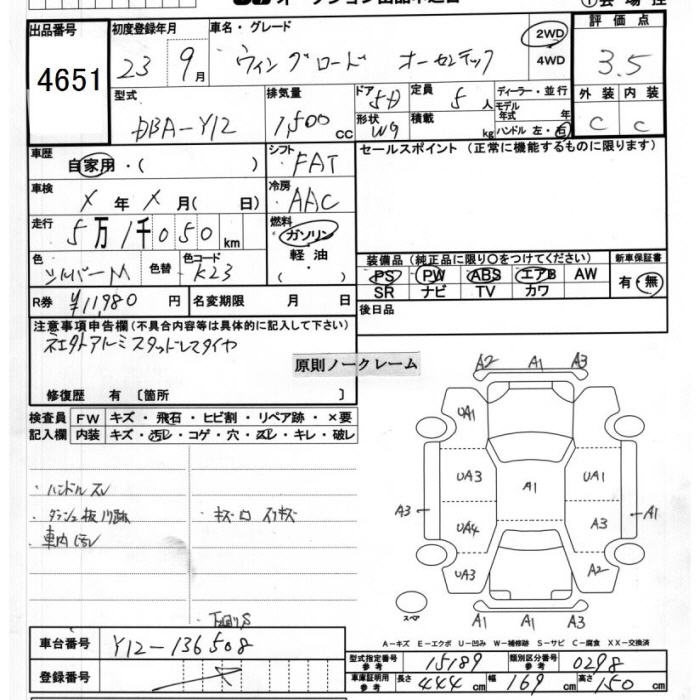 出品番号 4651
初度登録年月 23 9月
車名・グレード ウィングロード オーセンテック
2WD
4WD
評価点 3.5
型式 DBA-Y12
排気量 1,500 cc
ドア 5D
形状 Wg
定員 5人
積載 kg
ディーラー・並行
モデル年式 年
ハンドル 左・右
外装 C
内装 C
車歴 自家用・( )
シフト FAT
セールスポイント (正常に機能するものに限ります)
車検 X年X月( 日)
冷房 AAC
走行 5万1千050km
燃料 ガソリン
軽油
( ・ )
色 シルバーM
色替
色コード K23
装備品 (純正品に限り○をつけてください)
PS PW ABS エアB AW
SR ナビ TV カワ
新車保証書
有・無
R券 ¥11,980円
名変期限 月 日
後日品
注意事項申告欄(不具合内容等は具体的に記入して下さい)
スタッドレスタイヤ
原則ノークレーム
修復歴 有 [箇所 ]
検査員 FW キズ・飛石・ヒビ割・リペア跡・×要
記入欄 内装 キズ・汚レ・コゲ・穴・スレ・キレ・破レ
・ハンドルスレ
・車内汚レ
A2 A1 A3
UA1
UA3 A1 UA1
A3 UA4 A3 A1
UA3 A2
スペア
A1 A1 A1
A-キズ E-エクボ U-凹み W-補修跡 S-サビ C-腐食 XX-交換済
車台番号 Y12-136508
型式指定番号 参考 15189
類別区分番号 参考 0298
登録番号
車庫証明用 参考 長さ 444cm 幅 169cm 高さ 150cm